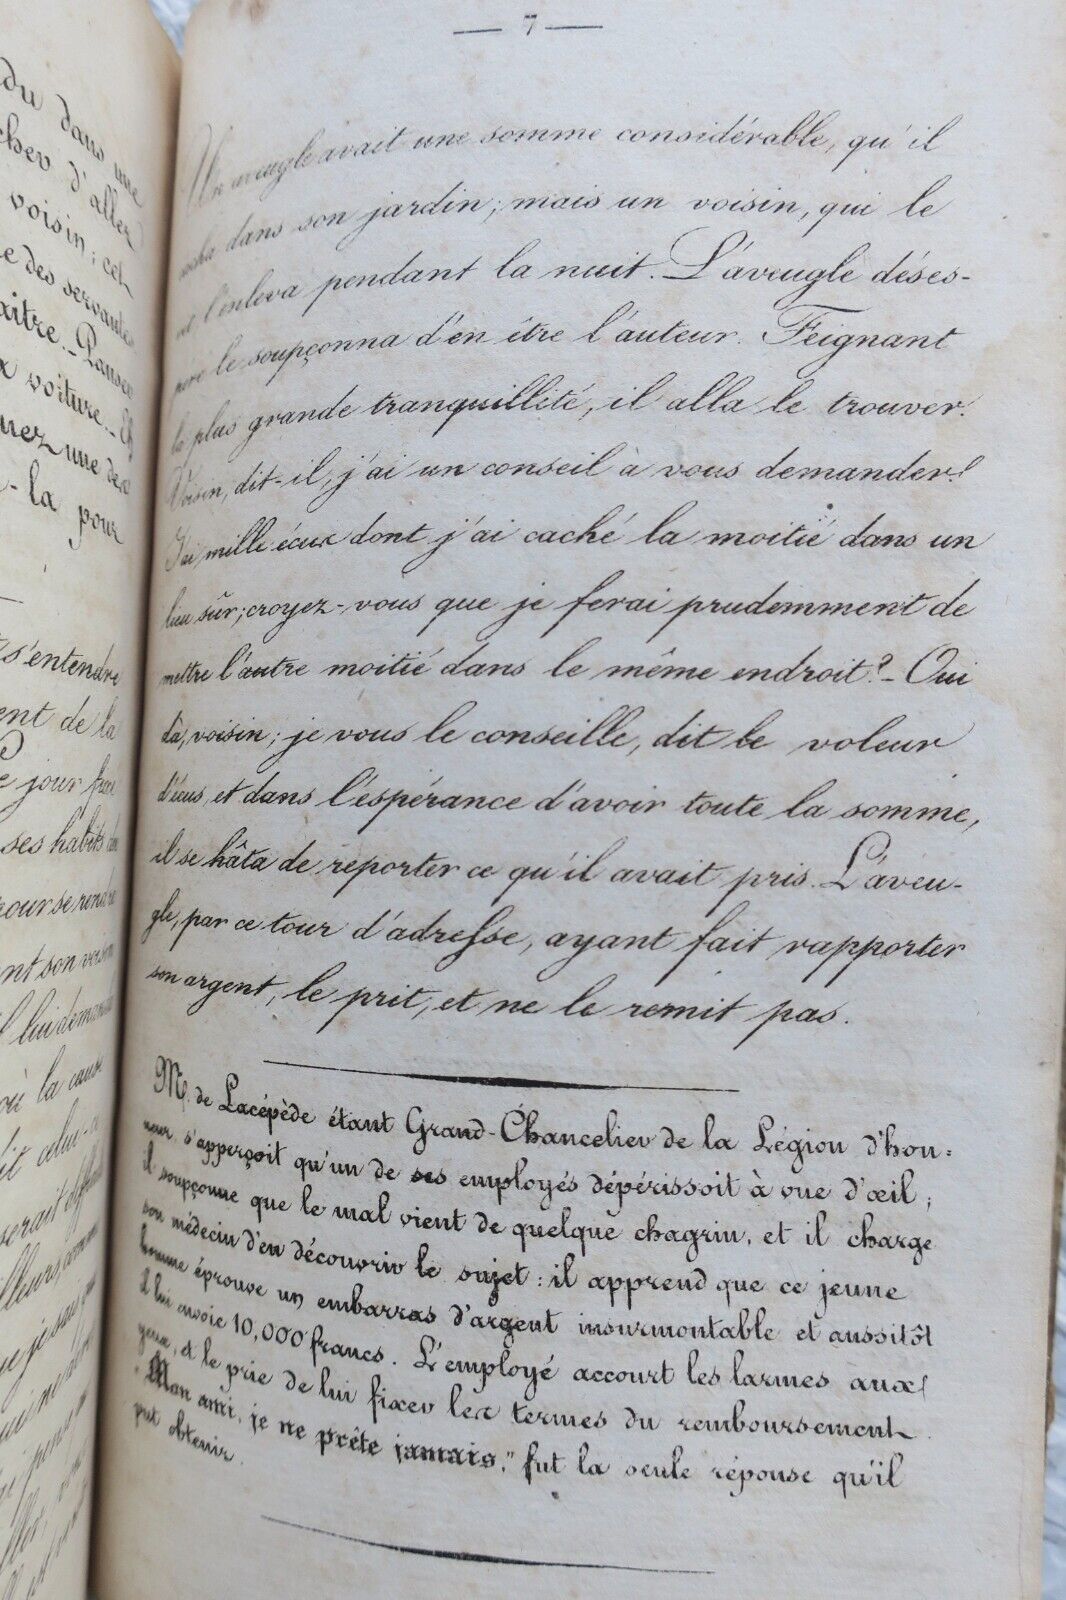 du dans une
cher d'aller
voisin; cet
e des servantes
aitre. Pansez
x voiture.
nez une des
-la pour
s'entendre
ent de la
e jour fixé
ses habits
pour se rendre
ant son voisin
il lui demanda
où la cause
it celui-ci
serait
— 7 —
Un aveugle avait une somme considérable, qu'il
cacha dans son jardin; mais un voisin, qui le
vit l'enleva pendant la nuit. L'aveugle déses-
péré le soupçonna d'en être l'auteur. Feignant
la plus grande tranquillité, il alla le trouver.
Voisin, dit-il, j'ai un conseil à vous demander!
J'ai mille écus dont j'ai caché la moitié dans un
lieu sûr; croyez-vous que je ferai prudemment de
mettre l'autre moitié dans le même endroit? — Oui
dà, voisin; je vous le conseille, dit le voleur
d'écus, et dans l'espérance d'avoir toute la somme,
il se hâta de reporter ce qu'il avait pris. L'aveu-
gle, par ce tour d'adresse, ayant fait rapporter
son argent, le prit, et ne le remit pas.
M. de Lacépède étant Grand-Chancelier de la Légion d'hon=
neur s'apperçoit qu'un de ses employés dépérissoit à vue d'œil;
il soupçonne que le mal vient de quelque chagrin, et il charge
son médecin d'en découvrir le sujet: il apprend que ce jeune
homme éprouve un embarras d'argent insurmontable et aussitôt
il lui envoie 10,000 francs. L'employé accourt les larmes aux
yeux, et le prie de lui fixer les termes du remboursement.
"Mon ami, je ne prête jamais," fut la seule réponse qu'il
put obtenir.